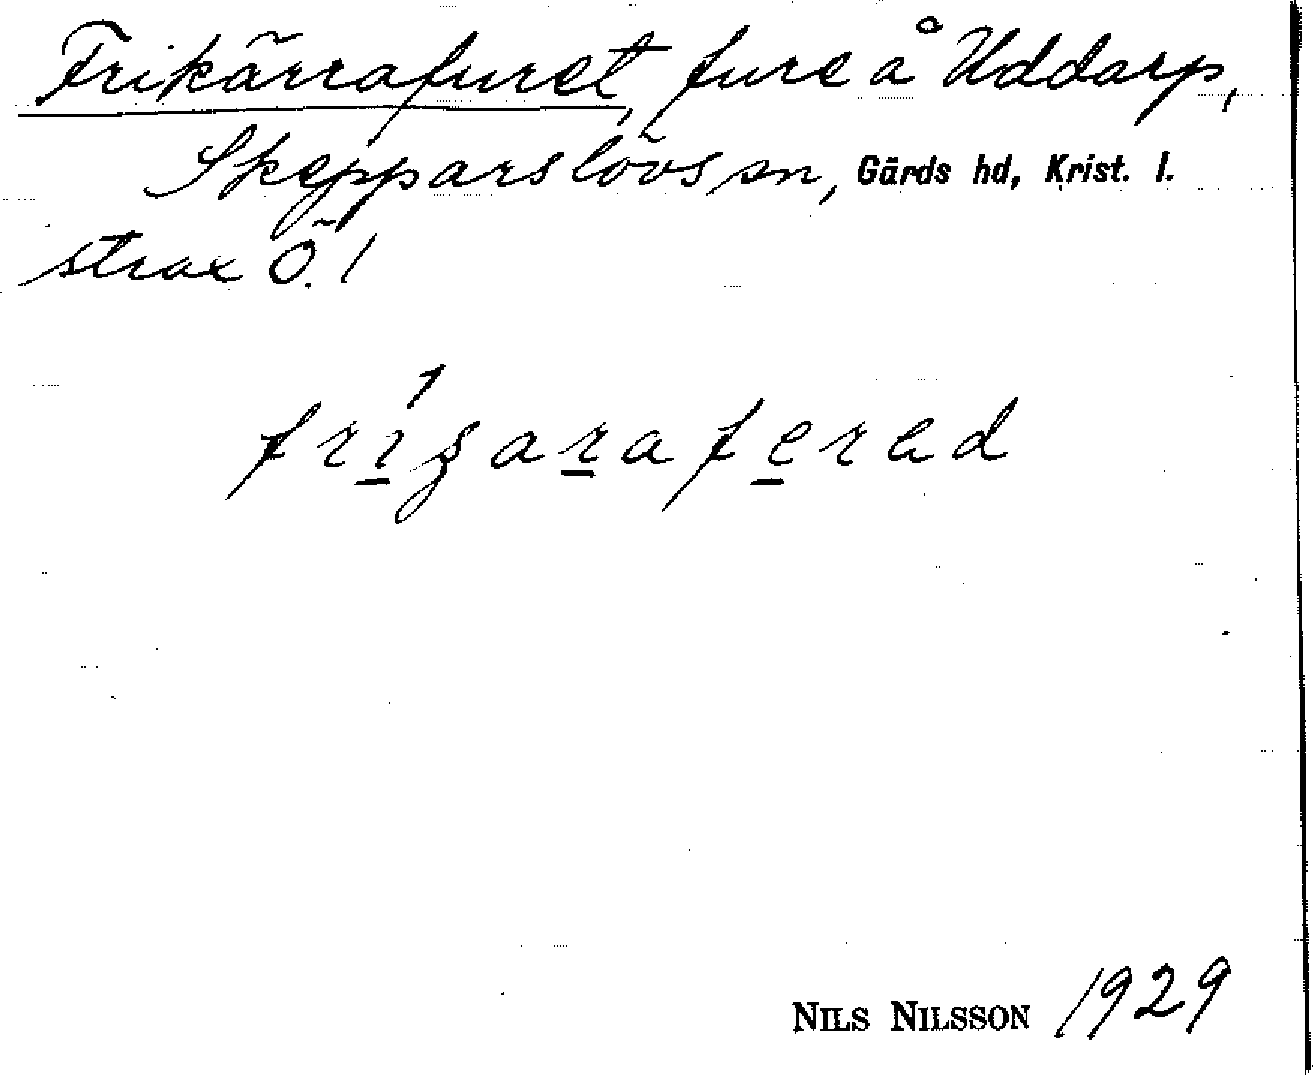 Frikärrafuret, fure å Uddarp,
Skepparslövs sn, Gärds hd, Krist. l.
strax Ö. /
frı́ʒaraferad
NILS NILSSON 1929